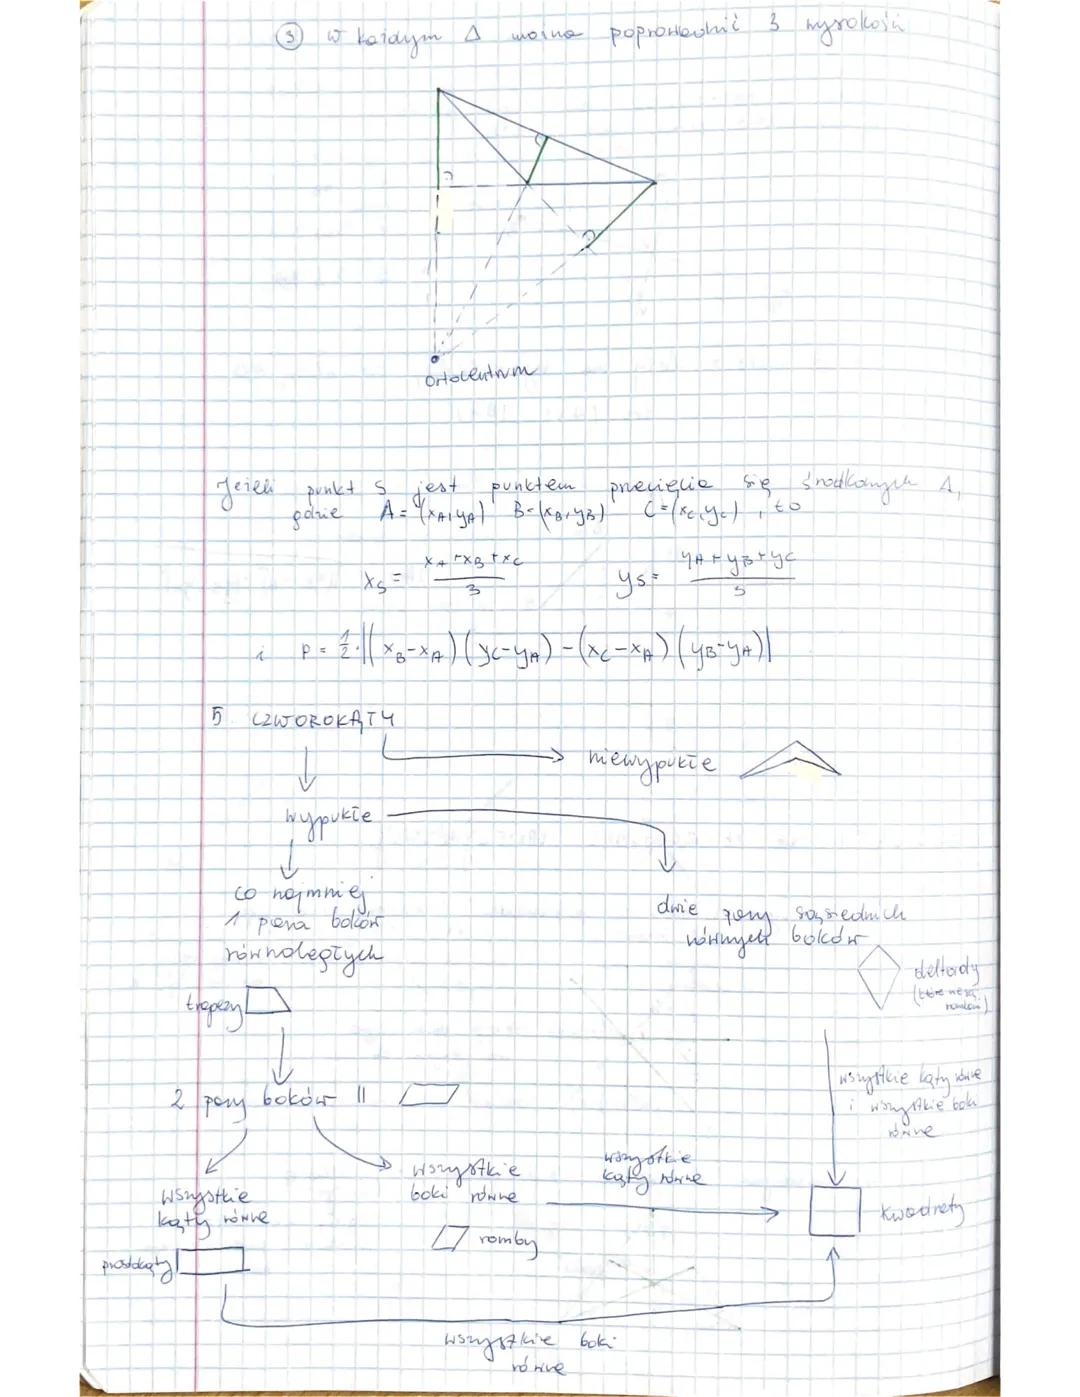 ③ W każdym Δ można poprowadzić 3 wysokości
Ortocentrum
Jeżeli punkt S jest punktem przecięcia się środkowych Δ,
gdzie A=(x_A, y_A) B=(x_B, y_B) C=(x_C, y_C), to
x_S = (x_A+x_B+x_C)/3 y_S = (y_A+y_B+y_C)/3
i P = 1/2·|(x_B-x_A)(y_C-y_A)-(x_C-x_A)(y_B-y_A)|
5 CZWOROKĄTY
niewypukłe
wypukłe
co najmniej
1 para boków
równoległych
trapezy
dwie pary sąsiednich
równych boków
deltoidy
(które nie są
rombami)
2 pary boków ||
wszystkie kąty równe
i wszystkie boki
równe
wszystkie
kąty równe
prostokąty
wszystkie
boki równe
romby
wszystkie
kąty równe
kwadraty
wszystkie boki
równe